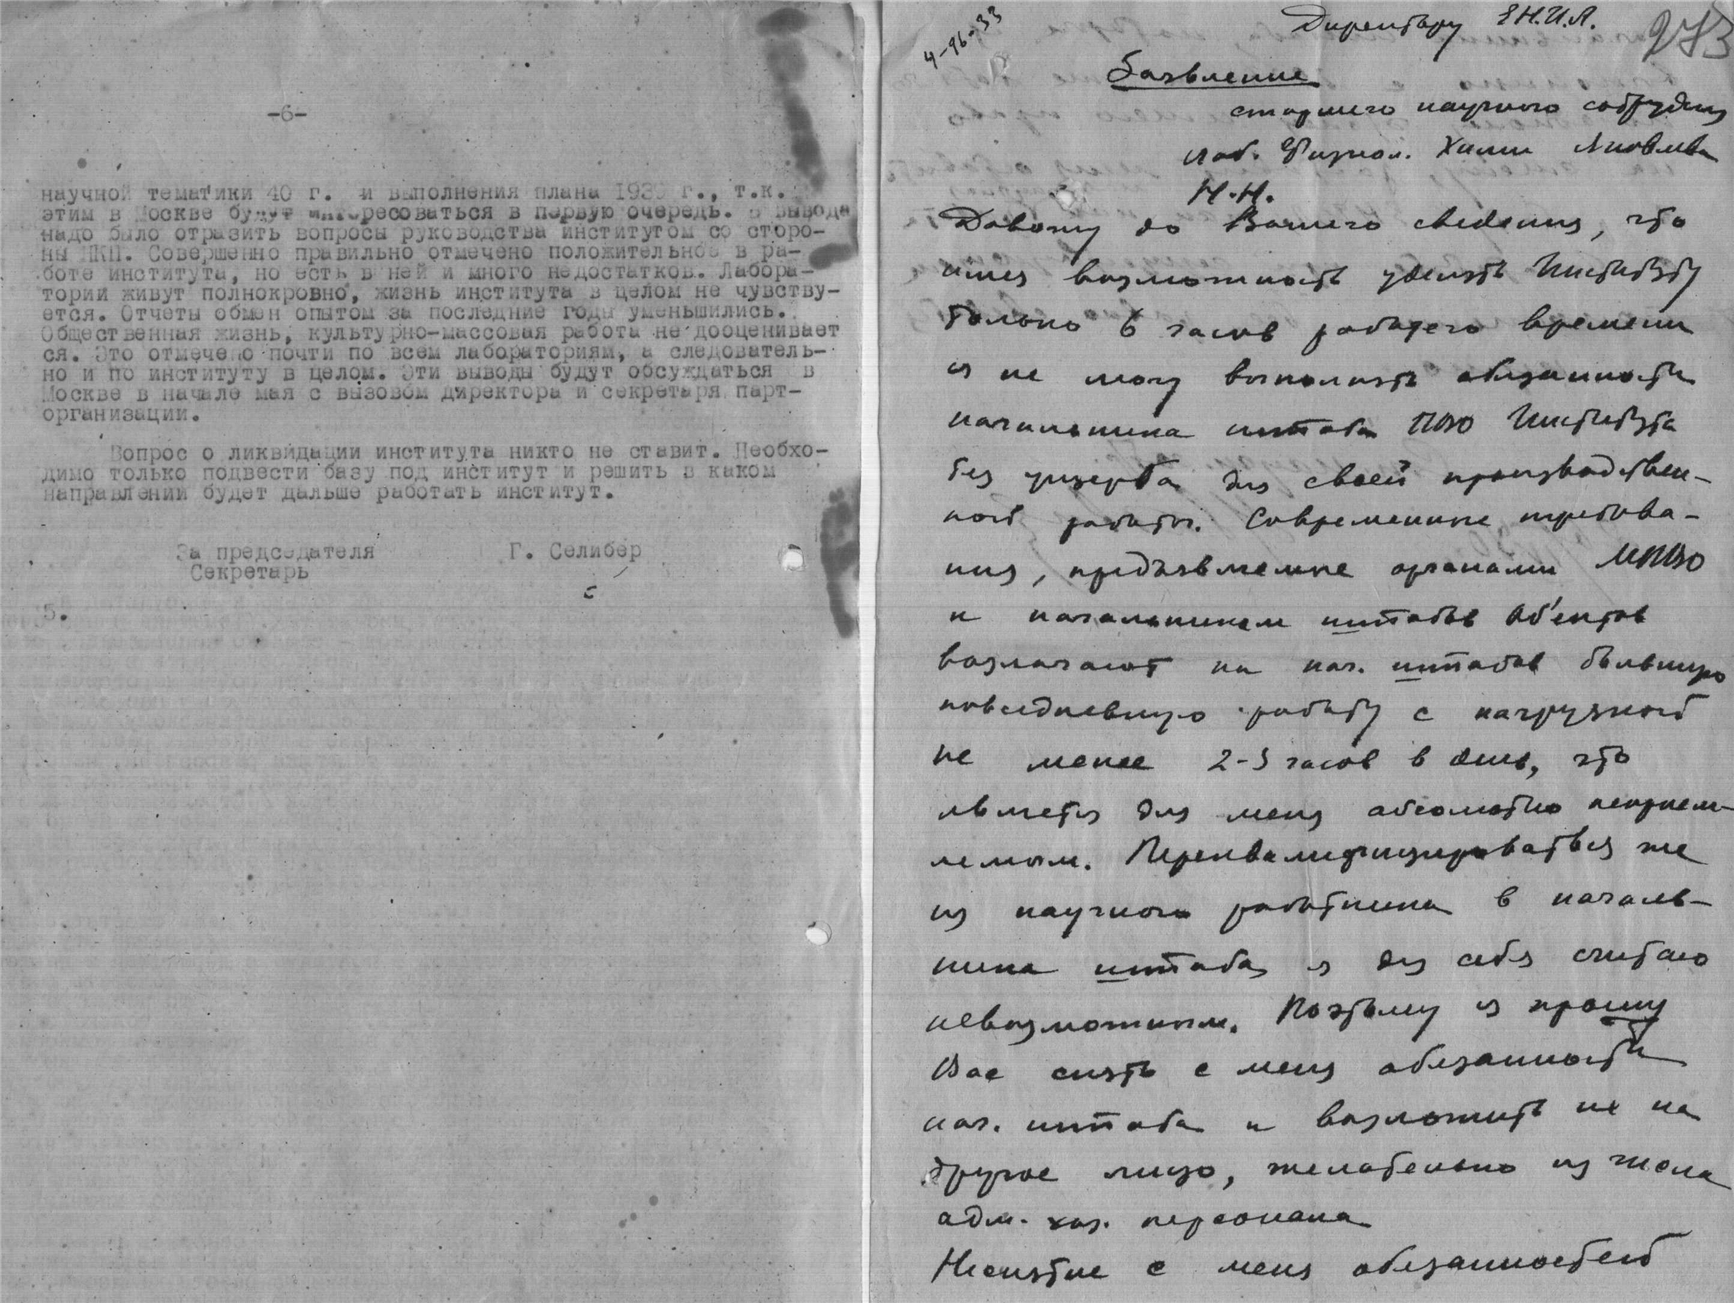 -6-
научной тематики 40 г. и выполнения плана 193 г., т.к.
этим в Москве будут интересоваться в первую очередь. В вывода
надо было отразить вопросы руководства институтом со сторо-
ны НКП. Совершенно правильно отмечено положительное в ра-
боте института, но есть в ней и много недостатков. Лабора-
тории живут полнокровно, жизнь института в целом не чувству-
ется. Отчеты обмен опытом за последние годы уменьшились.
Общественная жизнь, культурно-массовая работа не дооценивает
ся. Это отмечено почти по всем лабораториям, а следователь-
но и по институту в целом. Эти выводы будут обсуждаться в
Москве в начале мая с вызовом директора и секретаря парт-
организации.
Вопрос о ликвидации института никто не ставит. Необхо-
димо только подвести базу под институт и решить в каком
направлении будет дальше работать институт.
За председателя Г. Селибер
Секретарь
5.
4-96-33
Директору ЕН.И.Л.
273
Заявление
старшего научного сотрудник
лаб. Физиол. Химии Яковлева
Н.Н.
Довожу до Вашего сведения, что
имея возможность уделять Институту
только 6 часов рабочего времени
я не могу выполнять обязанности
начальника штаба ПВО Института
без ущерба для своей производствен-
ной работы. Современные требова-
ния, предъявляемые органами МПВО
к начальникам штабов об'ектов
возлагают на нач. штабов большую
повседневную работу с нагрузкой
не менее 2-3 часов в день, что
является для меня абсолютно неприем-
лемым. Переквалифицироваться же
из научного работника в началь-
ника штаба я для себя считаю
невозможным. Поэтому я прошу
Вас снять с меня обязанности
нач. штаба и возложить их на
другое лицо, желательно из числа
адм. хоз. персонала
Неснятие с меня обязанностей